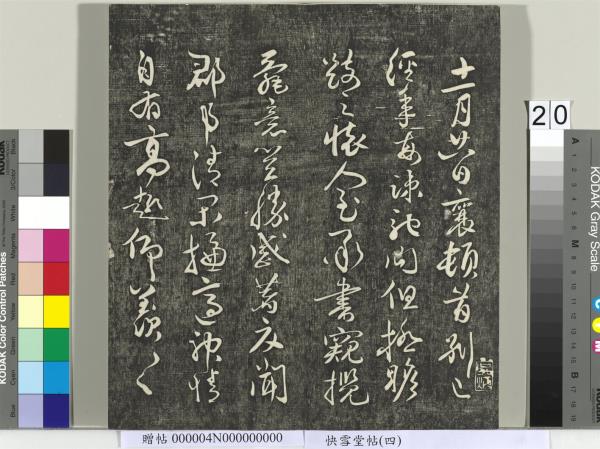 十一月廿日襄頓首別已
經年每疎馳問但極瞻
之懷人至承書窺攬
意豈勝感著又聞
郡事清神情
自有高趣仰羨〻
20
KODAK Color Control Patches
Blue
Cyan
Green
Yellow
Red
Magenta
White
3/Color
Black
KODAK Gray Scale
C
Y
M
A
1
2
3
4
5
6
M
8
9
10
11
12
13
14
15
B
17
18
19
贈帖 000004N000000000
快雪堂帖(四)